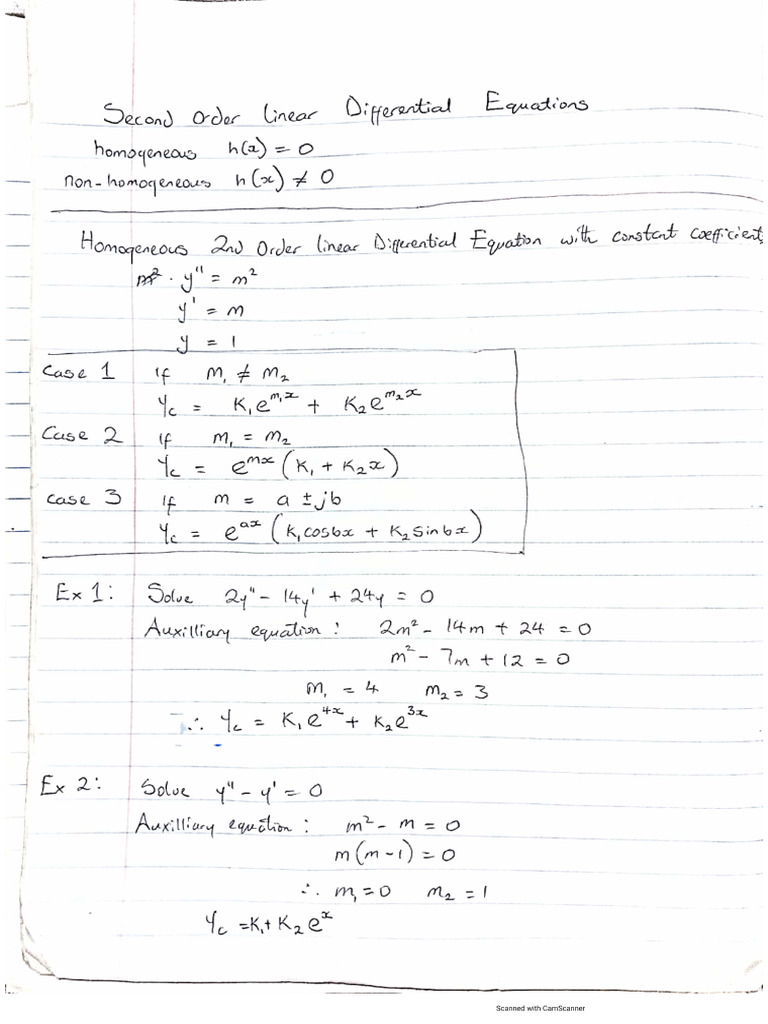 Second Order linear Differential Equations
homogeneous h(x) = 0
non-homogeneous h(x) ≠ 0
Homogeneous 2nd Order linear Differential Equation with constant coefficient
· y'' = m²
y' = m
y = 1
Case 1 if m₁ ≠ m₂
y_c = K₁e^{m₁x} + K₂e^{m₂x}
Case 2 if m₁ = m₂
y_c = e^{mx} (K₁ + K₂x)
Case 3 if m = a ± jb
y_c = e^{ax} (K₁cosbx + K₂sinbx)
Ex 1: Solve 2y'' - 14y' + 24y = 0
Auxilliary equation: 2m² - 14m + 24 = 0
m² - 7m + 12 = 0
m₁ = 4 m₂ = 3
∴ y_c = K₁e^{4x} + K₂e^{3x}
Ex 2: Solve y'' - y' = 0
Auxilliary equation: m² - m = 0
m(m-1) = 0
∴ m₁ = 0 m₂ = 1
y_c = K₁ + K₂e^x
Scanned with CamScanner